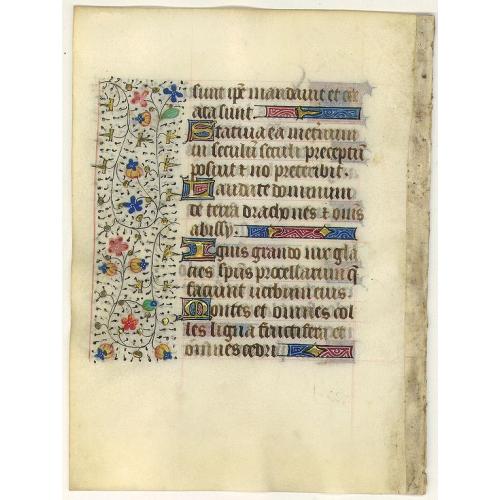 sunt ip̄e mandauit et cre
ata sunt.
Statuit ea in eternum
in seculū seculi preceptū
posuit & nō preteribit.
Laudate dominum
de terra drachones & om̄s
abissy.
Ignis grando nix gla
cies sp̄us procellarum q̄
faciunt uerbum eius
Montes et omnes col
les ligna fructifera et
omnes cedri